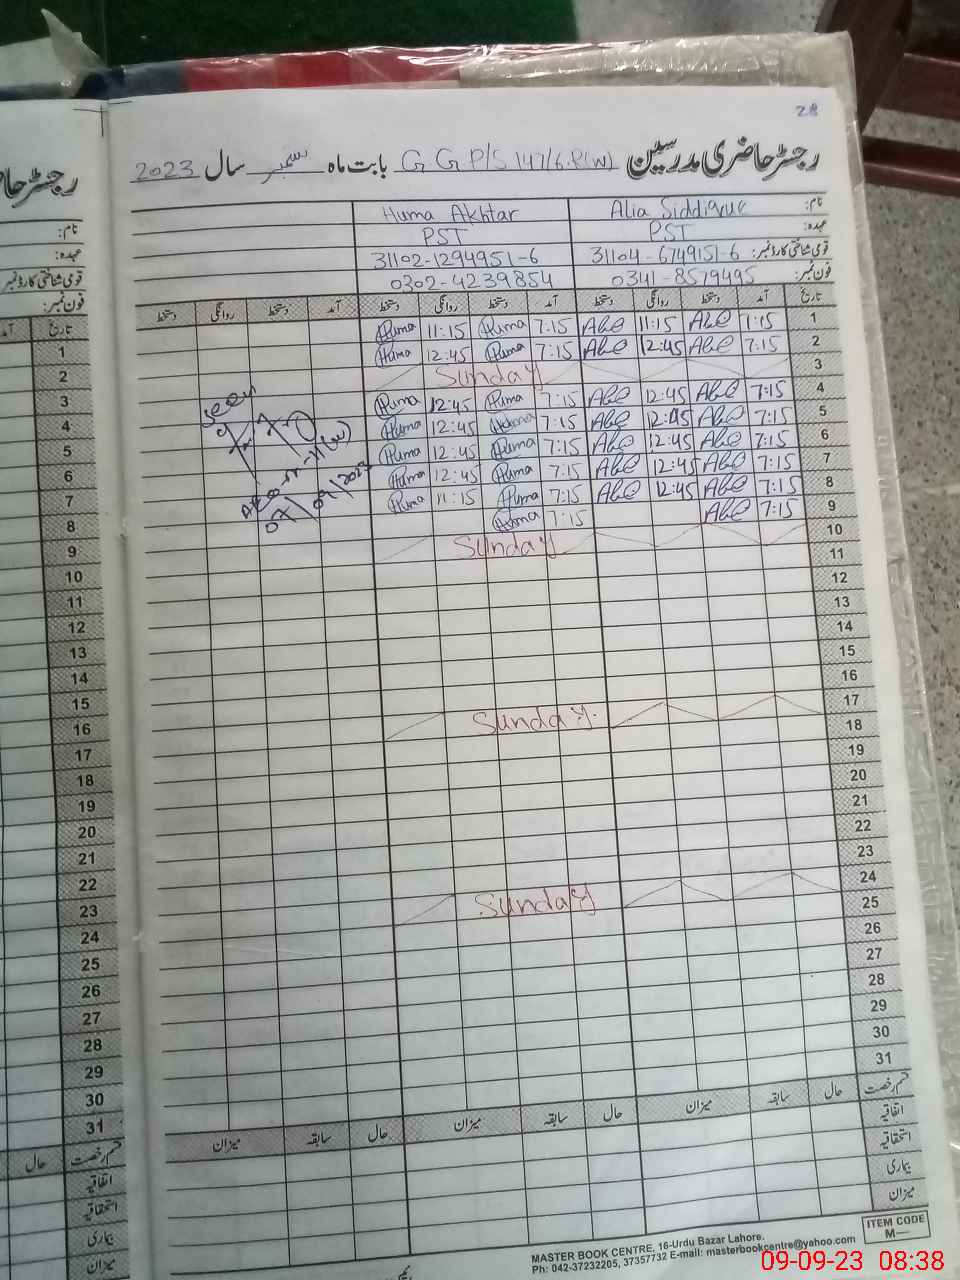 28
رجسٹر حاضری مدرسین G G P/S 147/6.R(W) بابت ماہ ستمبر سال 2023
نام: Alia Siddique Huma Akhtar
عہدہ: PST PST
قومی شناختی کارڈ نمبر: 31104-6749151-6 31102-1294951-6
فون نمبر: 0341-8579495 0302-4239854
تاریخ آمد دستخط روانگی دستخط آمد دستخط روانگی دستخط آمد دستخط روانگی دستخط
1 7:15 11:15 7:15 Huma 11:15 Huma
2 7:15 12:45 7:15 Huma 12:45 Huma
3 Sunday
4 7:15 12:45 7:15 Huma 12:45 Huma
5 7:15 12:45 7:15 Huma 12:45 Huma
6 7:15 12:45 7:15 Huma 12:45 Huma
7 7:15 12:45 7:15 Huma 12:45 Huma
8 7:15 12:45 7:15 Huma 11:15 Huma
9 7:15 7:15 Huma
10 Sunday
11
12
13
14
15
16
17 Sunday
18
19
20
21
22
23
24 Sunday
25
26
27
28
29
30
31
Seen
07/09/2023
قسم رخصت حال سابقہ میزان حال سابقہ میزان حال سابقہ میزان
اتفاقیہ
استحقاقیہ
بیماری
میزان
ITEM CODE
M—
MASTER BOOK CENTRE, 16-Urdu Bazar Lahore.
Ph: 042-37232205, 37357732 E-mail: masterbookcentre@yahoo.com
رجسٹر حا
نام:
عہدہ:
قومی شناختی کارڈ نمبر
فون نمبر:
تاریخ آمد
1
2
3
4
5
6
7
8
9
10
11
12
13
14
15
16
17
18
19
20
21
22
23
24
25
26
27
28
29
30
31
قسم رخصت حال
اتفاقیہ
استحقاقیہ
بیماری
میزان
09-09-23 08:38